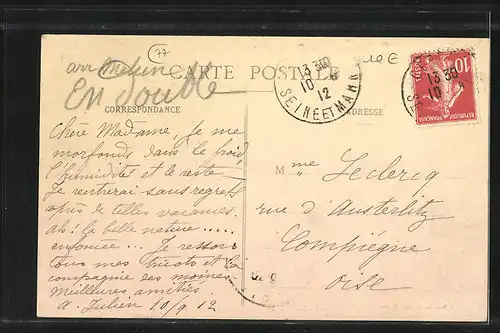 77
arr Melun
En double
10 €
CARTE POSTALE
CORRESPONDANCE
ADRESSE
13 30
10 - 9
12
SEINE ET MARNE
10
POSTES
REPUBLIQUE FRANCAISE
13 30
10
Chère Madame, je me
morfonds dans le froid
l'humidité et le reste
Je rentrerai sans regrets
après de telles vacances.
Ah! la belle nature
enfoncée... Je ressors
tous mes tricots et la
compagnie des moines
Meilleures amitiés
a. Julien 10/9 12
Mme Leclercq
rue d'Austerlitz
Compiègne
Oise